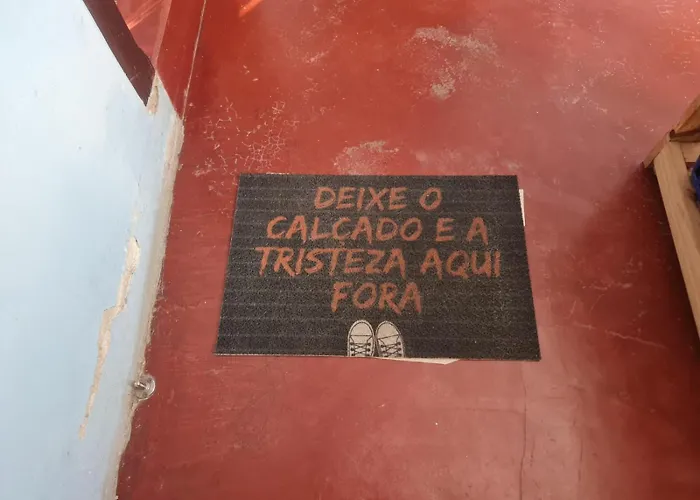 DEIXE O
CALCADO E A
TRISTEZA AQUI
FORA